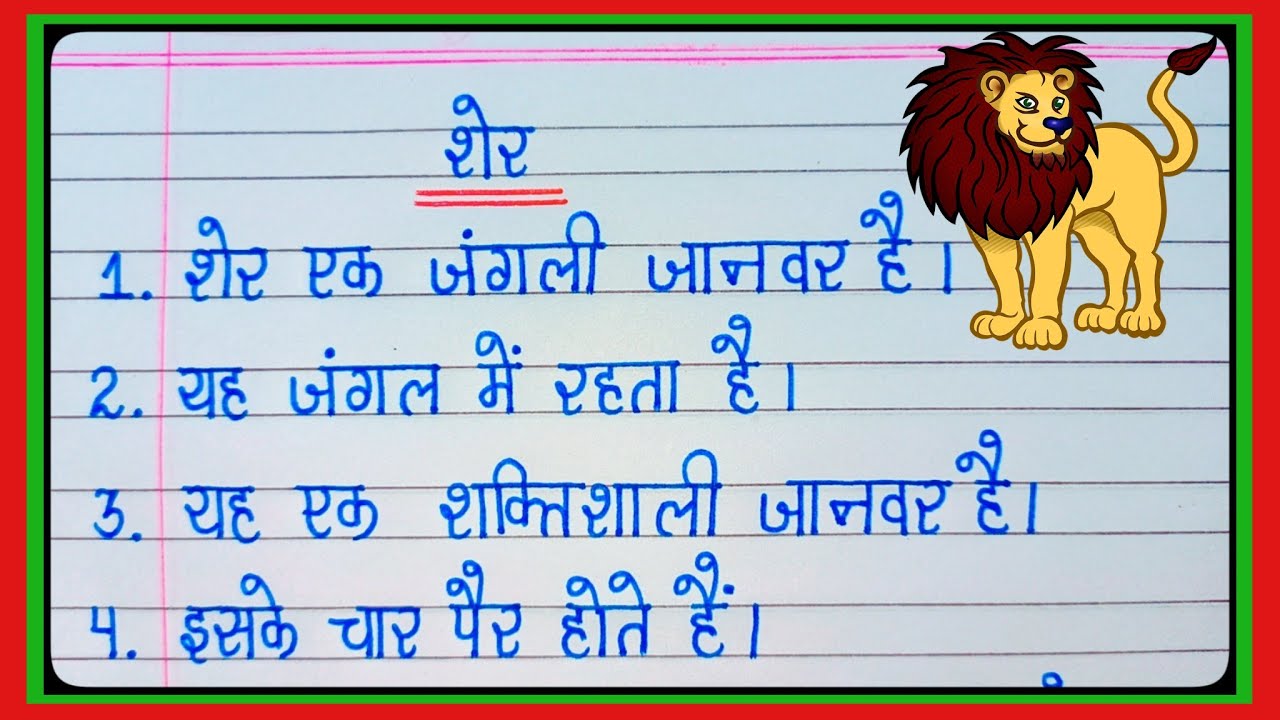 शेर
1. शेर एक जंगली जानवर है।
2. यह जंगल में रहता है।
3. यह एक शक्तिशाली जानवर है।
4. इसके चार पैर होते हैं।